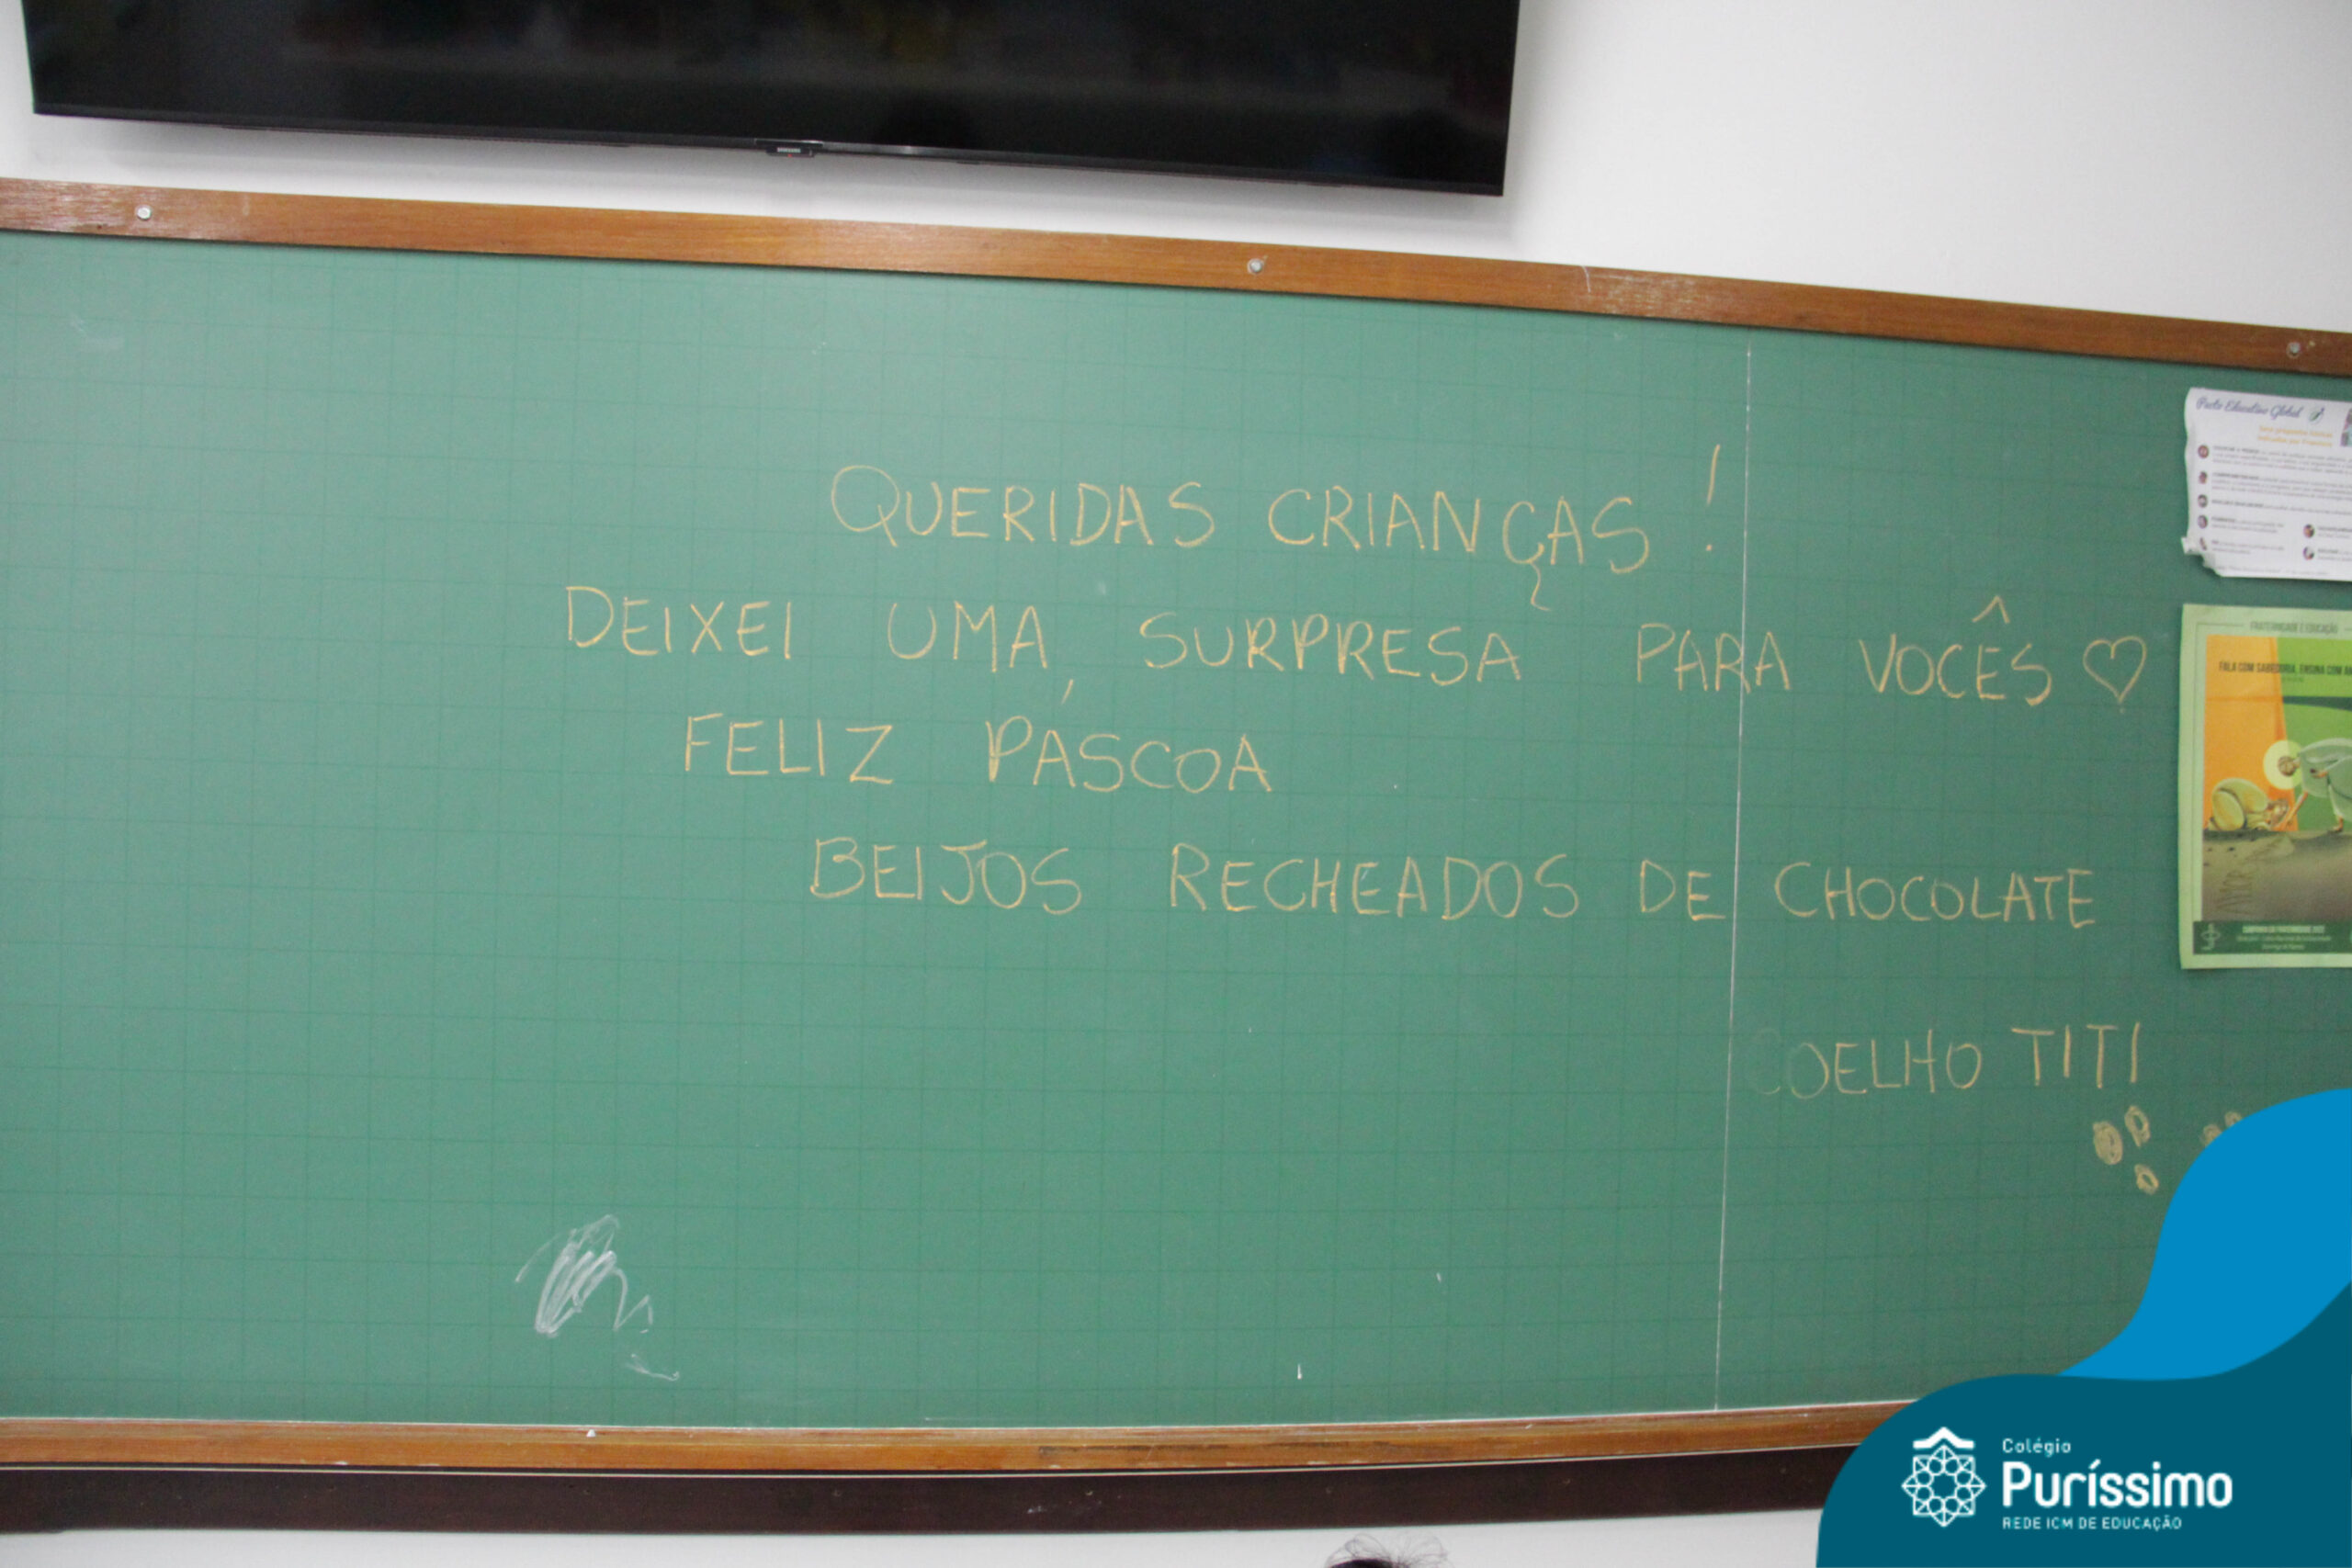 QUERIDAS CRIANÇAS!
DEIXEI UMA SURPRESA PARA VOCÊS ♡
FELIZ PÁSCOA
BEIJOS RECHEADOS DE CHOCOLATE
COELHO TITI
Pacto Educativo Global
FRATERNIDADE E EDUCAÇÃO
FALA COM SABEDORIA, ENSINA COM
Colégio
Puríssimo
REDE ICM DE EDUCAÇÃO